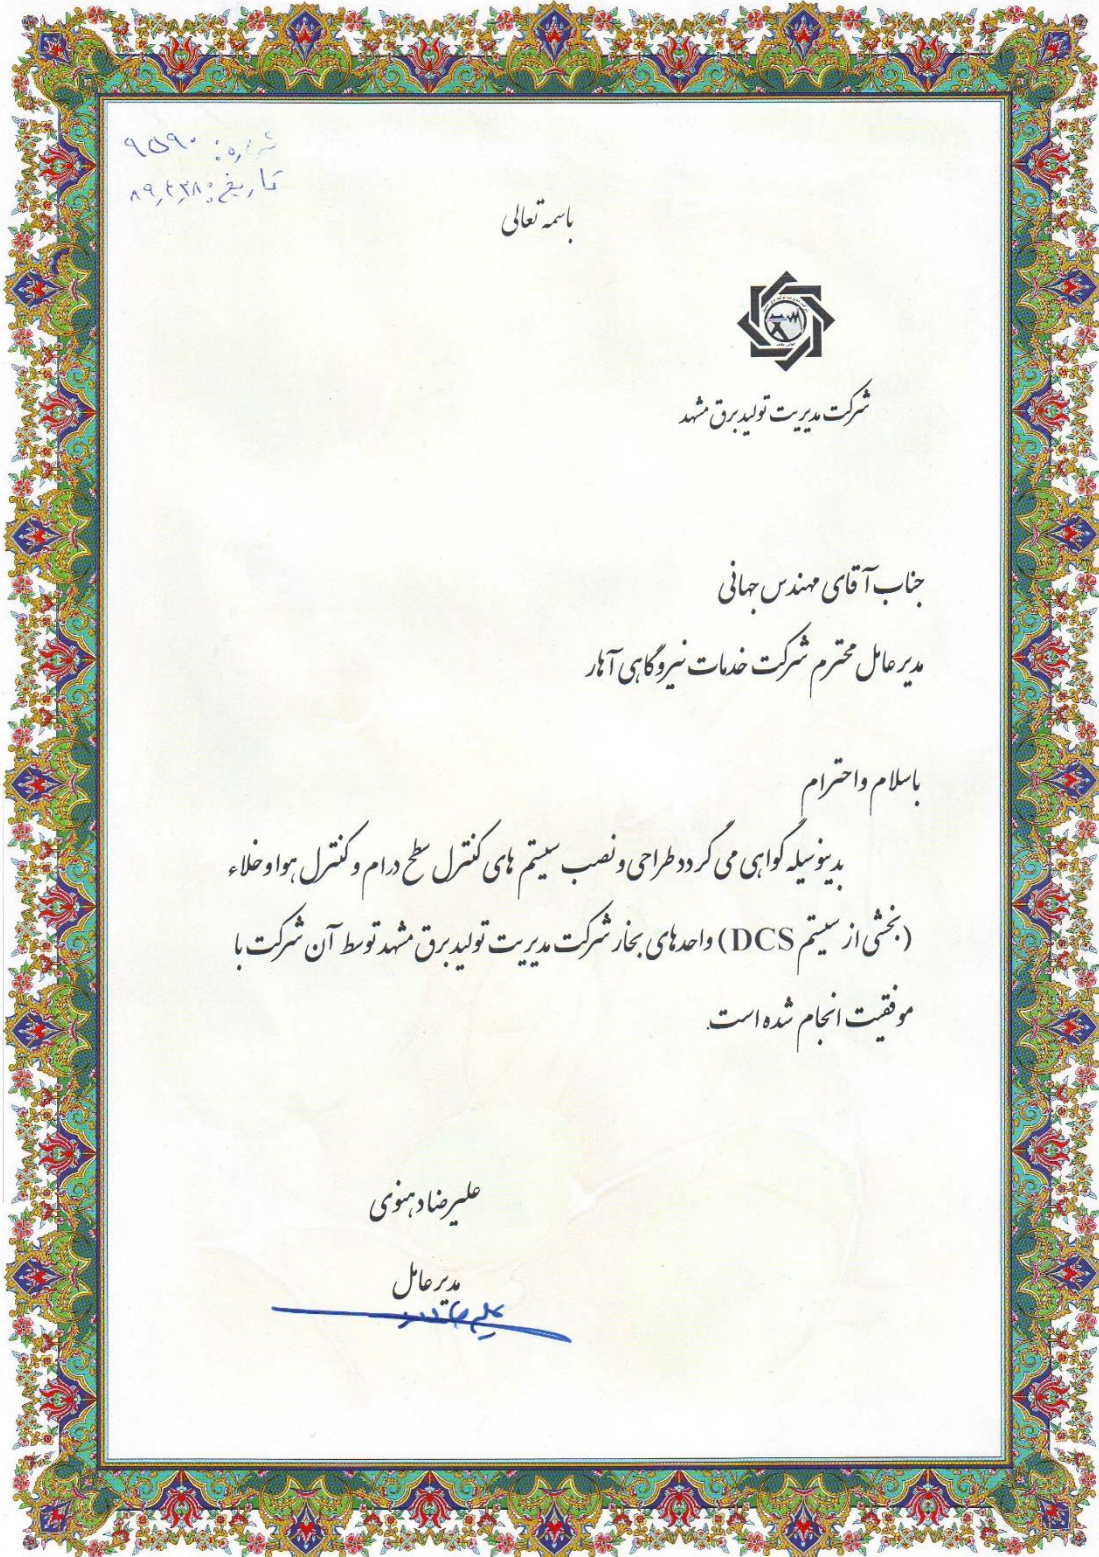 شماره: ۹۵۹۰
تاریخ: ۸۹٫۴٫۳۸
باسمه تعالی
شرکت مدیریت تولید برق مشهد
جناب آقای مهندس جهانی
مدیر عامل محترم شرکت خدمات نیروگاهی آهار
باسلام و احترام
بدینوسیله گواهی می گردد طراحی و نصب سیستم های کنترل سطح درام و کنترل هوا و خلاء
(بخشی از سیستم DCS) واحدهای بخار شرکت مدیریت تولید برق مشهد توسط آن شرکت با
موفقیت انجام شده است.
علیرضا دهنوی
مدیر عامل